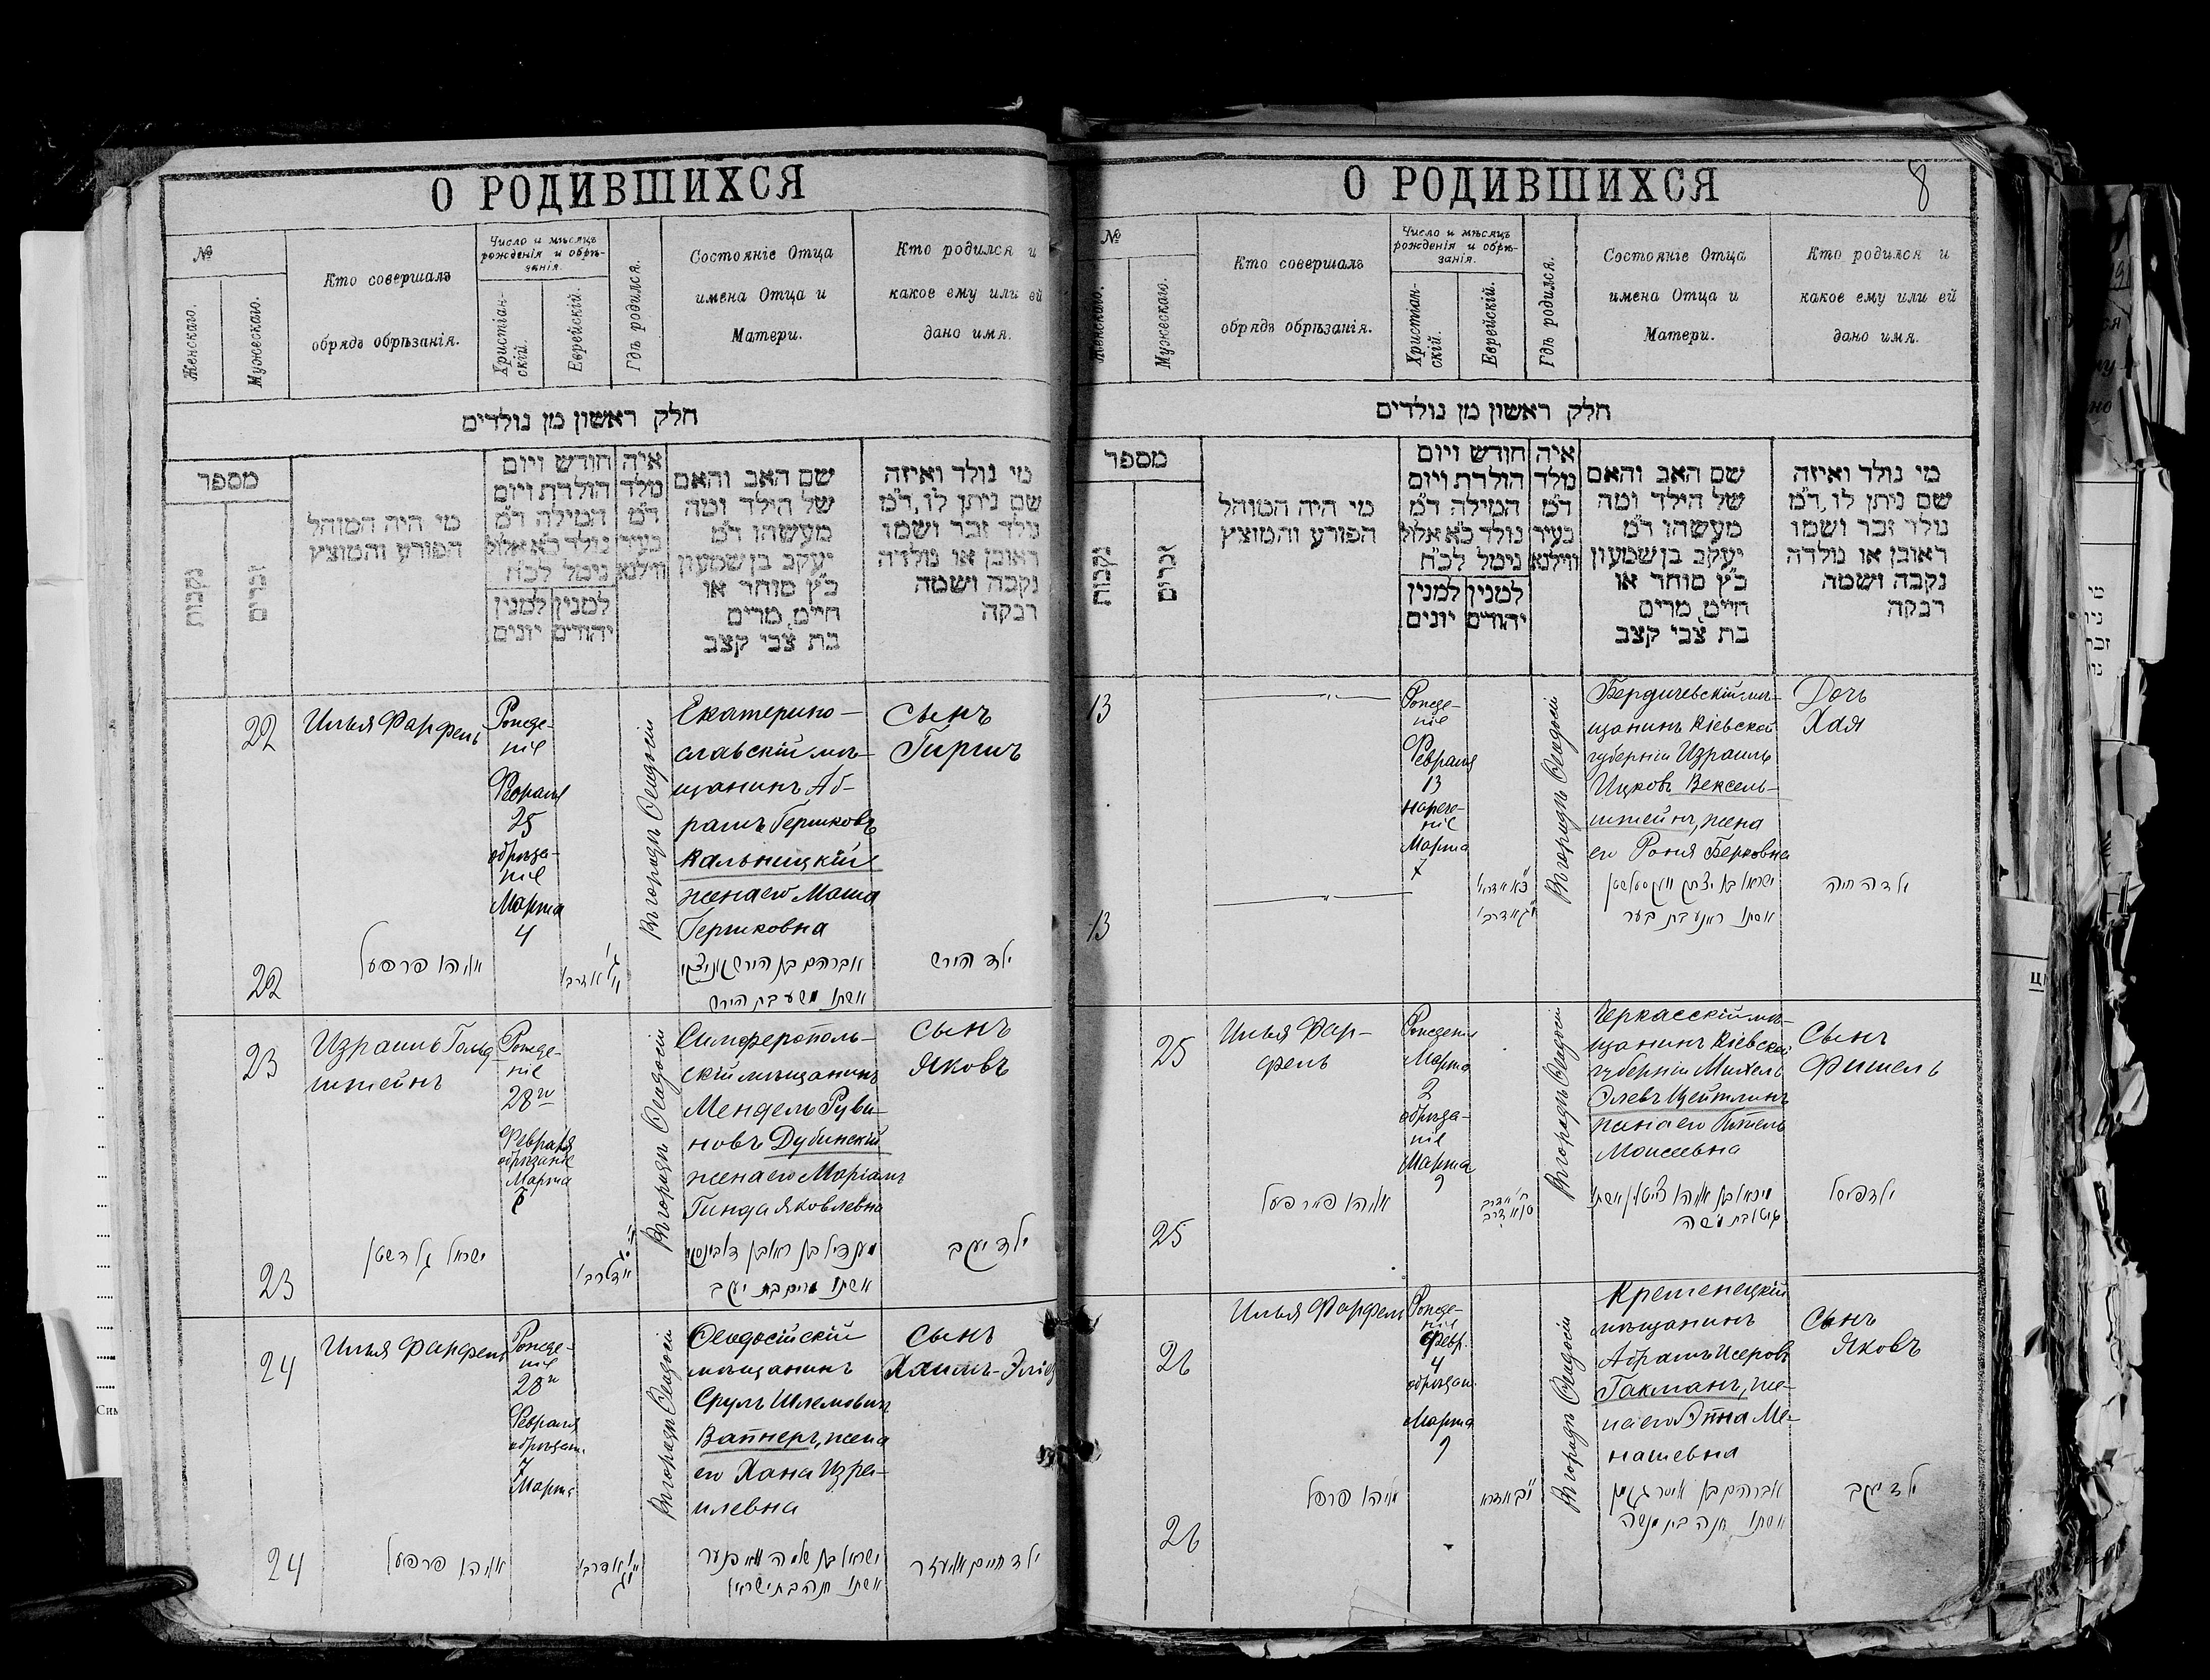 О РОДИВШИХСЯ
№
Женскаго.
Мужескаго.
Кто совершалъ
обрядъ обрѣзанія.
Число и мѣсяцъ
рожденія и обрѣ-
занія.
Христіан-
скій.
Еврейскій.
Гдѣ родился.
Состояніе Отца
имена Отца и
Матери.
Кто родился и
какое ему или ей
дано имя.
חלק ראשון מן נולדים
מספר
נקבות
זכרים
מי היה המוהל
הפורע והמוצץ
חודש ויום
הולדת ויום
המילה ד״מ
נולד כ״א אלול
נימל לכ״ח
למנין למנין
יהודים יונים
איה
מלד
ד״מ
בעיר
ווילנא
שם האב והאם
של הילד ומה
מעשהו ד״מ
יעקב בן שמעון
כ״ץ סוחר או
חיים, מרים
בת צבי קצב
מי נולד ואיזה
שם ניתן לו, ד״מ
נולד זכר ושמו
ראובן או נולדה
נקבה ושמה
רבקה
22
Илья Фарфель
Рожде-
ніе
Февраля
25
обрѣза-
ніе
Марта
4
Въ городѣ Ѳеодосіи
Екатерино-
славскій мѣ-
щанинъ Аб-
рамъ Гершковъ
Кальницкій
жена его Маша
Гершковна
Сынъ
Гиршъ
22
אליהו פרפעל
אשתו משע בת הירש
ילד הירש
23
Израиль Гольд
штейнъ
Рожде-
ніе
28го
Февраля
обрѣзаніе
Марта
7
Въ городѣ Ѳеодосіи
Симферополь-
скій мѣщанинъ
Мендель Руви-
новъ Дубинскій
жена его Маріамъ
Гинда Яковлевна
Сынъ
Яковъ
23
ישראל גולדשטן
מענדיל בן ראובן דובינסקי
אשתו מרים בת יעקב
ילד יעקב
24
Илья Фарфель
Рожде-
ніе
28го
Февраля
обрѣзан.
7
Марта
Въ городѣ Ѳеодосіи
Ѳеодосійскій
мѣщанинъ
Сруль Шлемовичъ
Вапнеръ, жена
его Хана Изра-
илевна
Сынъ
Хаимъ-Эліез
24
אליהו פרפעל
אשתו חנה בת ישראל
ילד חיים אליעזר
О РОДИВШИХСЯ
8
№
Женскаго.
Мужескаго.
Кто совершалъ
обрядъ обрѣзанія.
Число и мѣсяцъ
рожденія и обрѣ-
занія.
Христіан-
скій.
Еврейскій.
Гдѣ родился.
Состояніе Отца
имена Отца и
Матери.
Кто родился и
какое ему или ей
дано имя.
חלק ראשון מן נולדים
מספר
נקבות
זכרים
מי היה המוהל
הפורע והמוצץ
חודש ויום
הולדת ויום
המילה ד״מ
נולד כ״א אלול
נימל לכ״ח
למנין למנין
יהודים יונים
איה
מלד
ד״מ
בעיר
ווילנא
שם האב והאם
של הילד ומה
מעשהו ד״מ
יעקב בן שמעון
כ״ץ סוחר או
חיים, מרים
בת צבי קצב
מי נולד ואיזה
שם ניתן לו, ד״מ
נולד זכר ושמו
ראובן או נולדה
נקבה ושמה
רבקה
13
Рожде-
ніе
Февраля
13
нарече-
ніе
Марта
7
Въ городѣ Ѳеодосіи
Бердичевскій мѣ-
щанинъ Кіевской
губерніи Израиль
Ицковъ Вексель-
штейнъ, жена
его Рония Берковна
Дочь
Хая
13
ילדה חיה
25
Илья Фар-
фель
Рожденіе
Марта
2
обрѣза-
ніе
Марта
9
Въ городѣ Ѳеодосіи
Черкасскій мѣ-
щанинъ Кіевской
губерніи Михель
Элевъ Цейтлинъ
жена его Гитель
Моисеевна
Сынъ
Фишель
25
ילד פישל
26
Илья Фарфель
Рожде-
ніе
Февр.
4
обрѣзан.
Марта
9
Въ городѣ Ѳеодосіи
Кременецкій
мѣщанинъ
Абрамъ Исеровъ
Гакманъ, же-
на его Энна Ме-
нашевна
Сынъ
Яковъ
26
אליהו פרפל
אשתו חנה בת מנשה
ילד יעקב